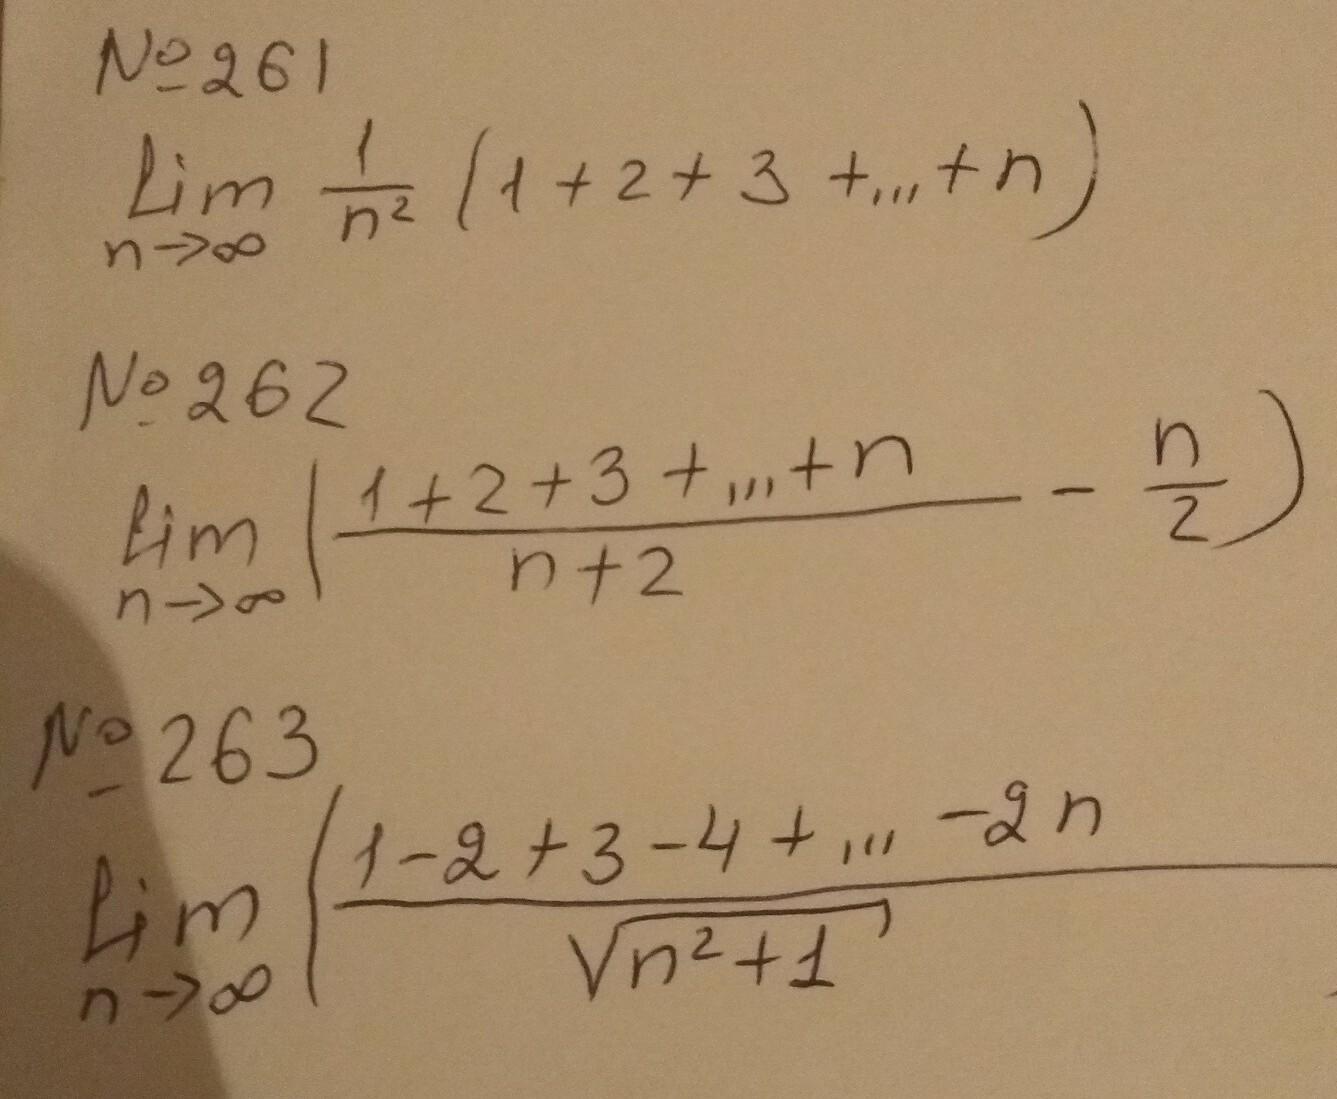 №261
Lim n→∞ 1/n² (1+2+3+...+n)
№262
Lim n→∞ (1+2+3+...+n / n+2 - n/2)
№263
Lim n→∞ (1-2+3-4+...-2n / √n²+1